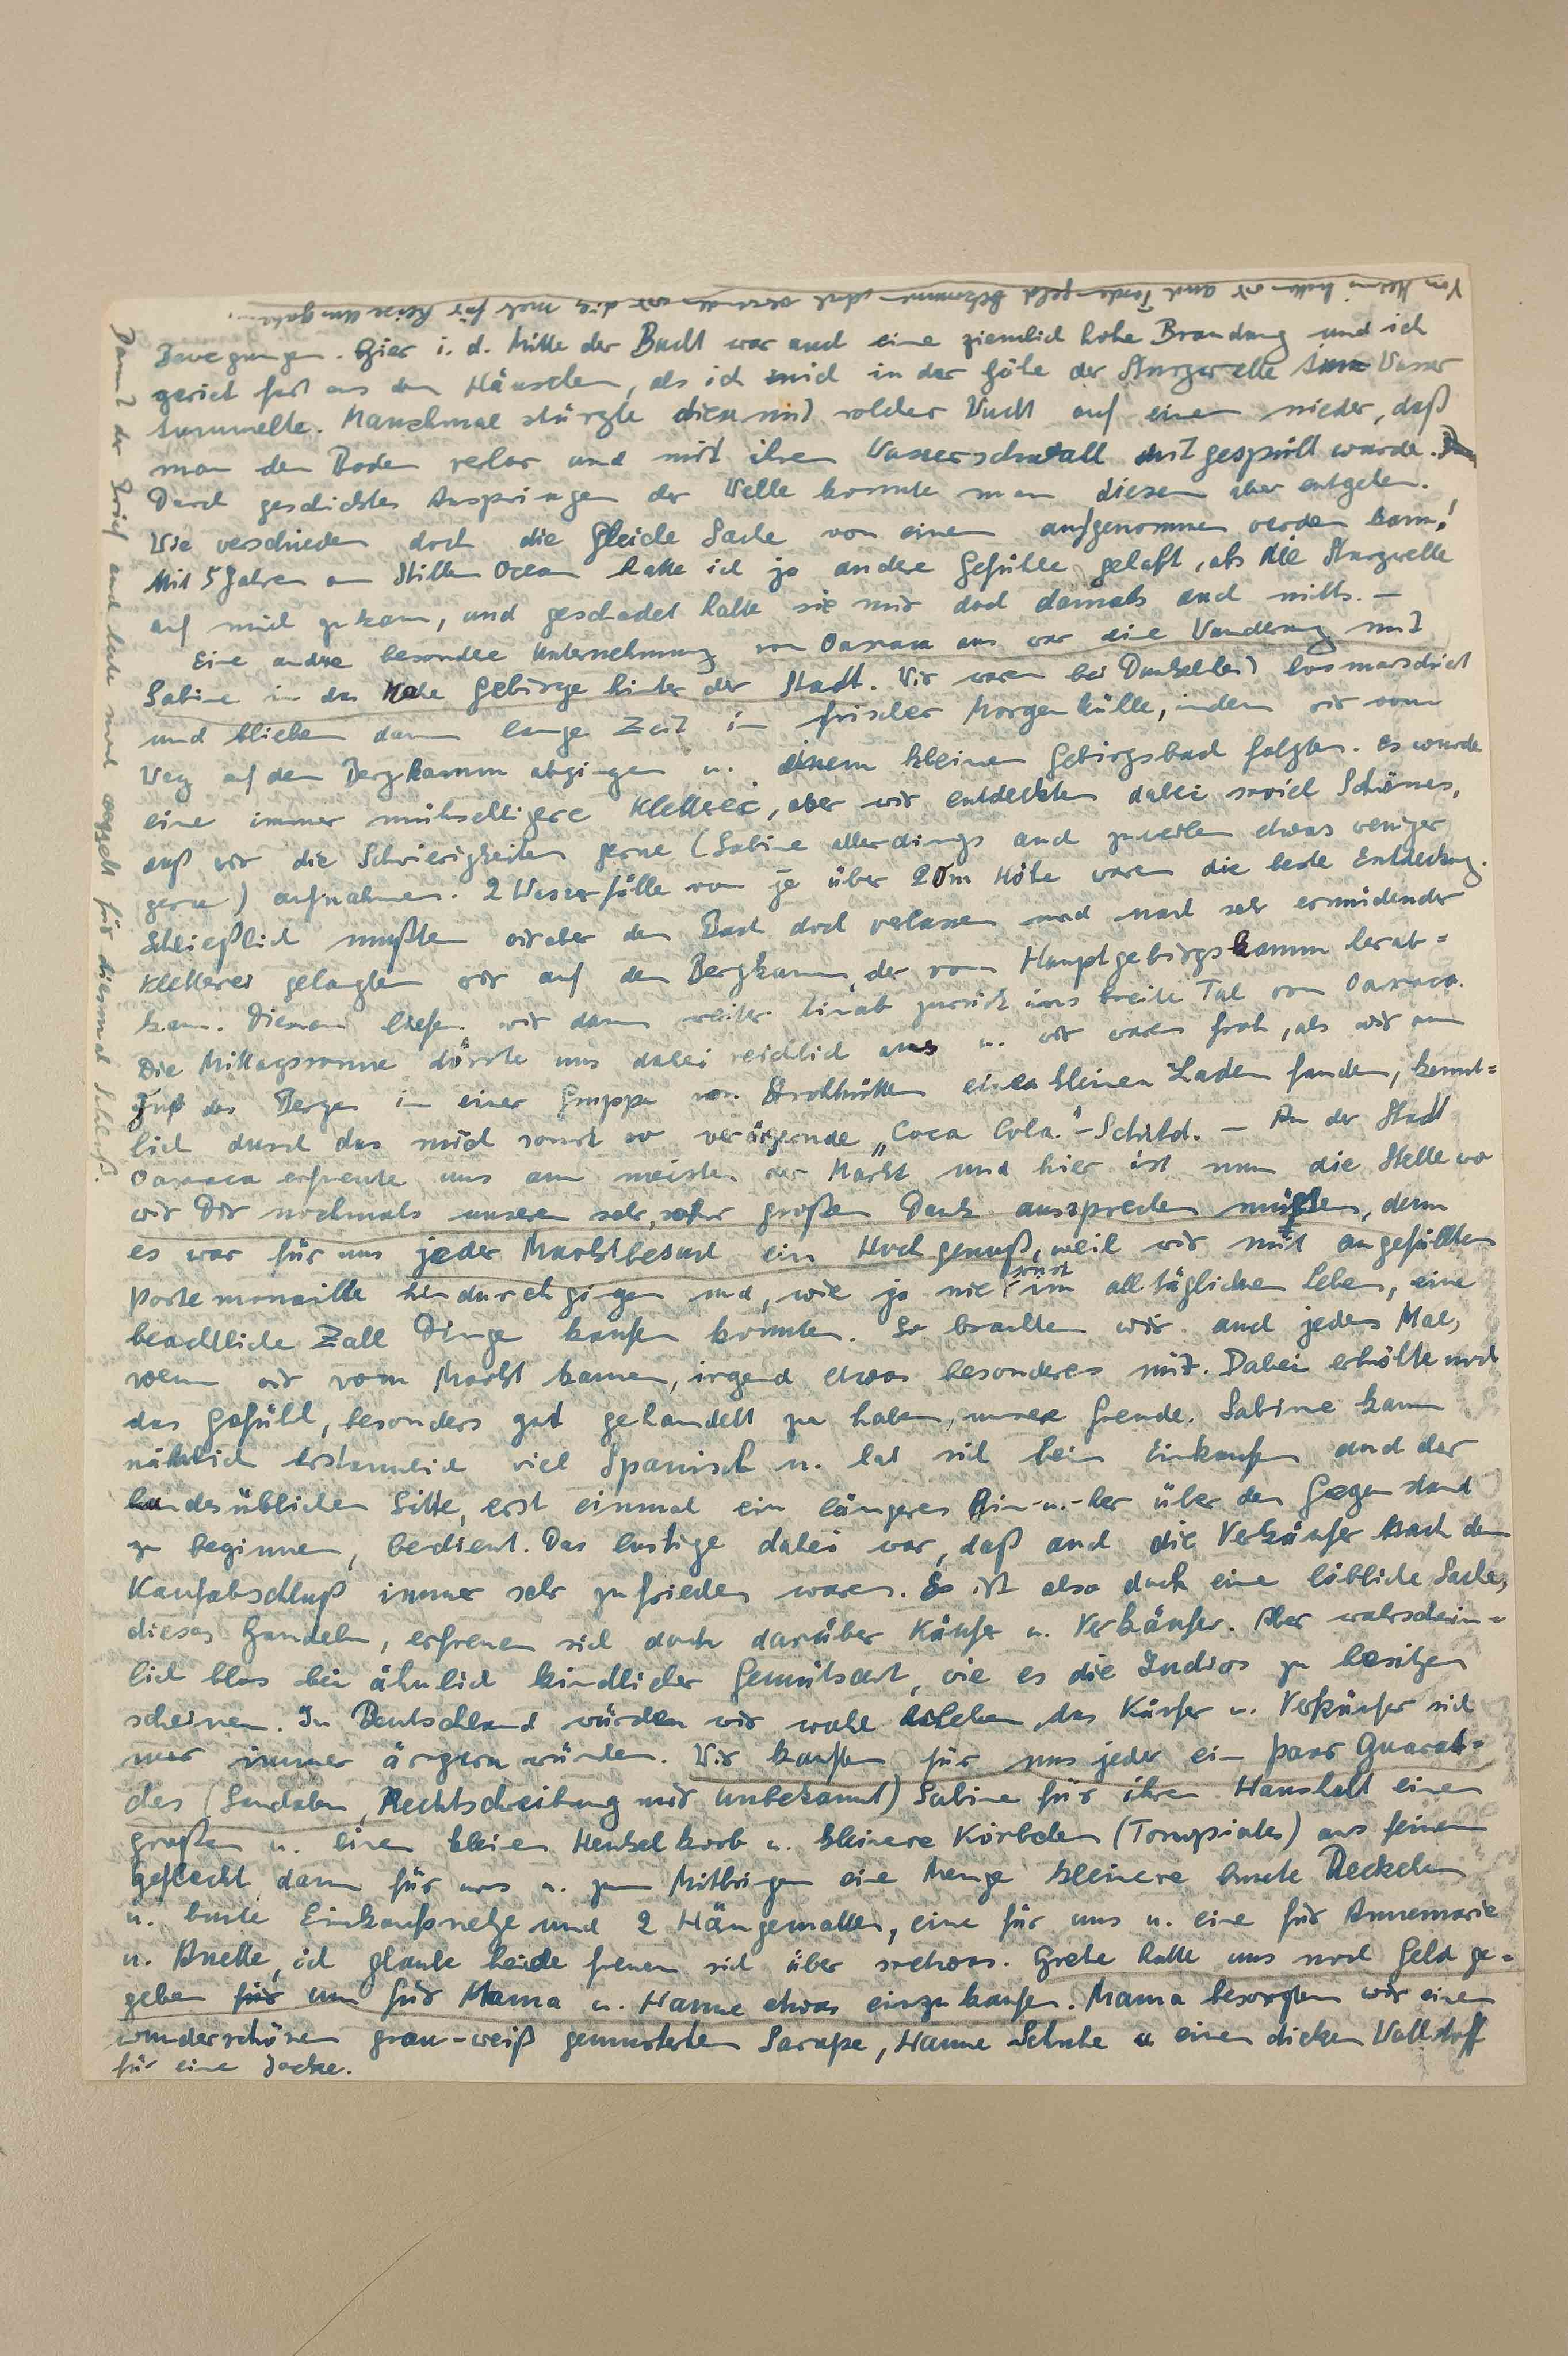 Bewegungen. Hier i. d. Mitte der Bucht war auch eine ziemlich hohe Brandung und ich
geriet fast aus dem Häuschen, als ich mich in der Höhe der Sturzwelle Wasser
tummelte. Manchmal stürzte diese mit solcher Wucht auf einen nieder, daß
man den Boden verlor und mit ihrem Wasserschwall mitgespült wurde.
Durch geschicktes Anspringen der Welle konnte man diesem aber entgehen.
Wie verschieden doch die gleiche Sache von einem aufgenommen werden kann!
Mit 5 Jahren am Stillen Ocean hatte ich ja andere Gefühle gehabt, als die Sturzwelle
auf mich zu kam, und geschadet hatte sie mir doch damals auch nichts. —
Eine andre besondre Unternehmung von Oaxaca aus war eine Wanderung mit
Sabine in das Hohe Gebirge hinter der Stadt. Wir waren bei Dunkelheit losmarschiert
und blieben dann lange Zeit in frischer Morgenkühle, indem wir vom
Weg auf den Bergkamm abgingen u. einem kleinen Gebirgsbach folgten. Es wurde
eine immer mühseligere Kletterei, aber wir entdeckten dabei soviel Schönes,
daß wir die Schwierigkeiten gerne (Sabine allerdings auch zuweilen etwas weniger
gerne) aufnahmen. 2 Wasserfälle von je über 20m Höhe waren die beste Entdeckung.
Schließlich mußten wir aber den Bach doch verlassen und nach sehr ermüdender
Kletterei gelangten wir auf den Bergkamm, der vom Hauptgebirgskamm herab=
kam. Diesem liefen wir dann weiter hinab zurück ins breite Tal von Oaxaca.
Die Mittagssonne dörrte uns dabei reichlich aus u. wir waren froh, als wir am
Fuß des Berges in einer Gruppe von Strohhütten einen kleinen Laden fanden, kennt=
lich durch das mich sonst so verärgernde „Coca Cola"-Schild. — An der Stadt
Oaxaca erfreute uns am meisten der Markt und hier ist nun die Stelle wo
wir Dir nochmals unseren sehr, sehr großen Dank aussprechen müßten, denn
es war für uns jeder Marktbesuch ein Hochgenuß, weil wir mit angefüllten
Portemonaille hindurchgingen und, wie ja nie sonst im alltäglichen Leben, eine
beachtliche Zahl Dinge kaufen konnten. So brachten wir auch jedes Mal,
wenn wir vom Markt kamen, irgend etwas besonderes mit. Dabei erhöhte noch
das Gefühl, besonders gut gehandelt zu haben, unsere Freude. Sabine kann
nämlich erstaunlich viel Spanisch u. hat sich beim Einkaufen auch der
landesüblichen Sitte, erst einmal ein längeres Hin-u.-her über den Gegenstand
zu beginnen, bedient. Das lustige dabei war, daß auch die Verkäufer nach dem
Kaufabschluß immer sehr zufrieden waren. Es ist also doch eine löbliche Sache,
dieses Handeln, erfreuen sich doch darüber Käufer u. Verkäufer. Aber wahrschein=
lich blos bei ähnlich kindlicher Gemütsart, wie es die Indios zu besitzen
scheinen. In Deutschland würden wir wohl erleben, das Käufer u. Verkäufer sich
nur immer ärgern würden. Wir kauften für uns jeder ein paar Guarat=
ches (Sandalen, Rechtschreibung mir unbekannt) Sabine für ihren Haushalt einen
großen u. einen kleinen Henkelkorb u. kleinere Körbchen (Tompiates) aus feinem
Geflecht, dann für uns u. zum Mitbringen eine Menge kleinere bunte Deckchen
u. bunte Einkaufsnetze und 2 Hängematten, eine für uns u. eine für Annemarie
u. Anette, ich glaube beide freuen sich über sowas. Grete hatte uns noch Geld ge=
geben für um für Mama u. Hanne etwas einzukaufen. Mama besorgten wir einen
wunderschönen grau-weiß gemusterten Sarape, Hanne Schuhe u einen dicken Wollstoff
für eine Jacke.
Von Heini hatten wir auch bekommen, doch verwenden wir dies mehr für Reiseausgaben.
Damit der Brief auch heute noch weggeht für diesmal Schluß.